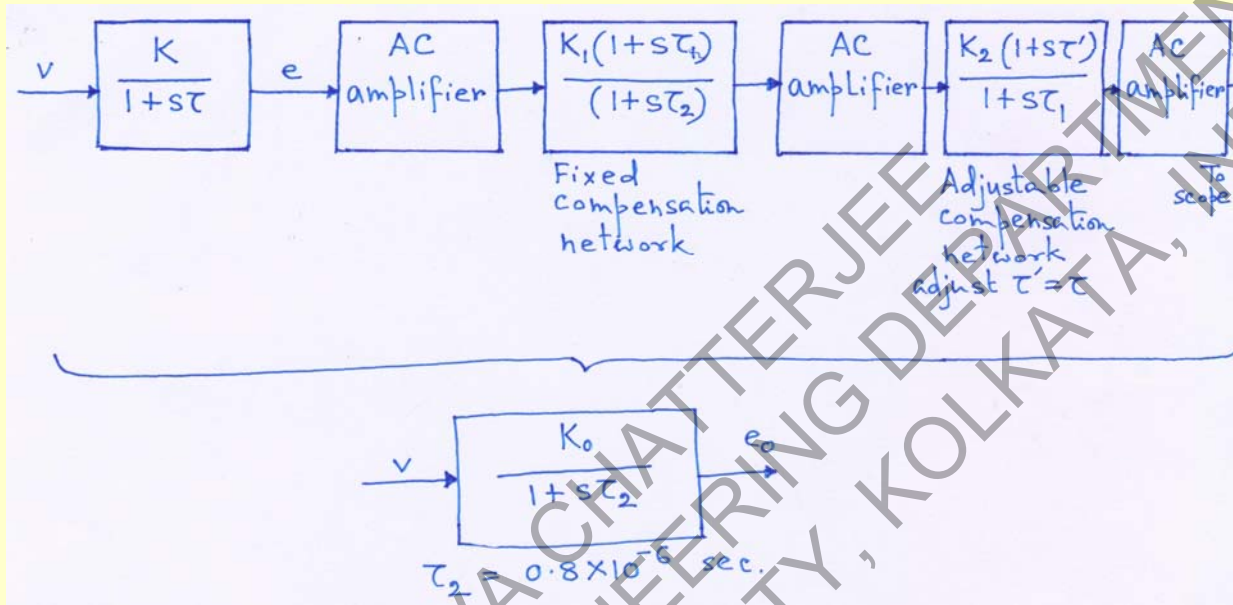 v
K
1+sτ
e
AC
amplifier
K₁(1+sτ₁)
(1+sτ₂)
Fixed
compensation
network
AC
amplifier
K₂(1+sτ')
1+sτ₁
Adjustable
compensation
network
adjust τ'=τ
AC
amplifier
To
scope
v
K₀
1+sτ₂
e₀
τ₂ = 0.8×10⁻⁶ sec.
VA CHATTERJEE
EERING DEPARTMEN
TY, KOLKATA, IN